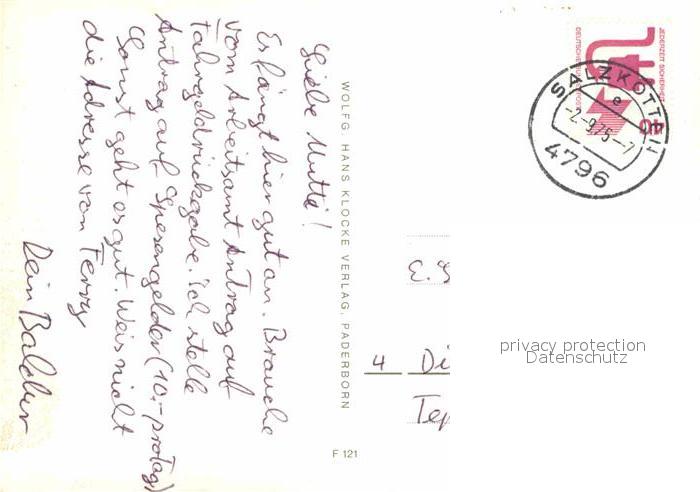 Liebe Mutti!
Es fängt hier gut an. Brauche
vom Arbeitsamt Antrag auf
Fahrgeldrückgabe. Ich stelle
Antrag auf Spesengelder (10,- proTag)
Sonst geht es gut. Weis nicht
die Adresse von Ferry
Dein Baldur
WOLFG. HANS KLOCKE VERLAG, PADERBORN
F 121
4 Di
Tep
JEDERZEIT SICHERHEIT
DEUTSCHE BUNDESPOST
SALZKOTTEN
e
-2.-9.75-7
4796
privacy protection
Datenschutz